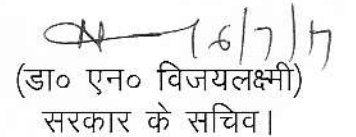 16/7/17
(डा० एन० विजयलक्ष्मी)
सरकार के सचिव।